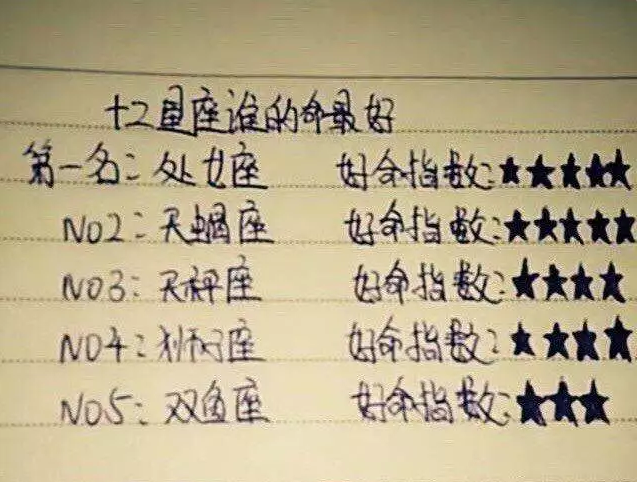 十二星座谁的命最好
第一名:处女座 好命指数:★★★★★
NO2:天蝎座 好命指数:★★★★★
NO3:天秤座 好命指数:★★★★
NO4:狮子座 好命指数:★★★★
NO5:双鱼座 好命指数:★★★